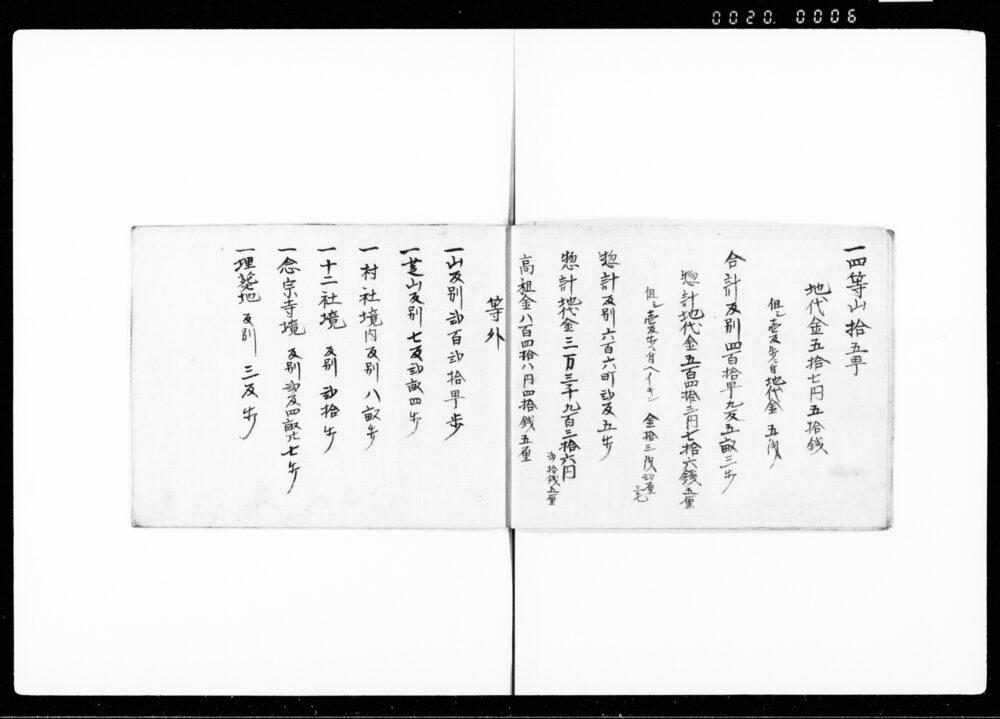 0020. 0006
一四等山拾五町
地代金五拾七円五拾銭
但シ壱反歩ニ付地代金 五銭
合計反別四百拾町九反五畝三歩
惣計地代金五百四拾三円七拾六銭五厘
但シ壱反歩ニ付ヘイキン 金拾三銭弐厘三毛
惣計反別六百六町弐反五歩
惣計地代金三万三千九百三拾六円弐拾銭五厘
高租金八百四拾八円四拾銭五厘
等外
一山反別弐百弐拾町歩
一芝山反別七反弐畝四歩
一村社境内反別八畝歩
一十二社境 反別弐拾歩
一念宗寺境 反別弐反四畝廿七歩
一埋葬地反別 三反歩